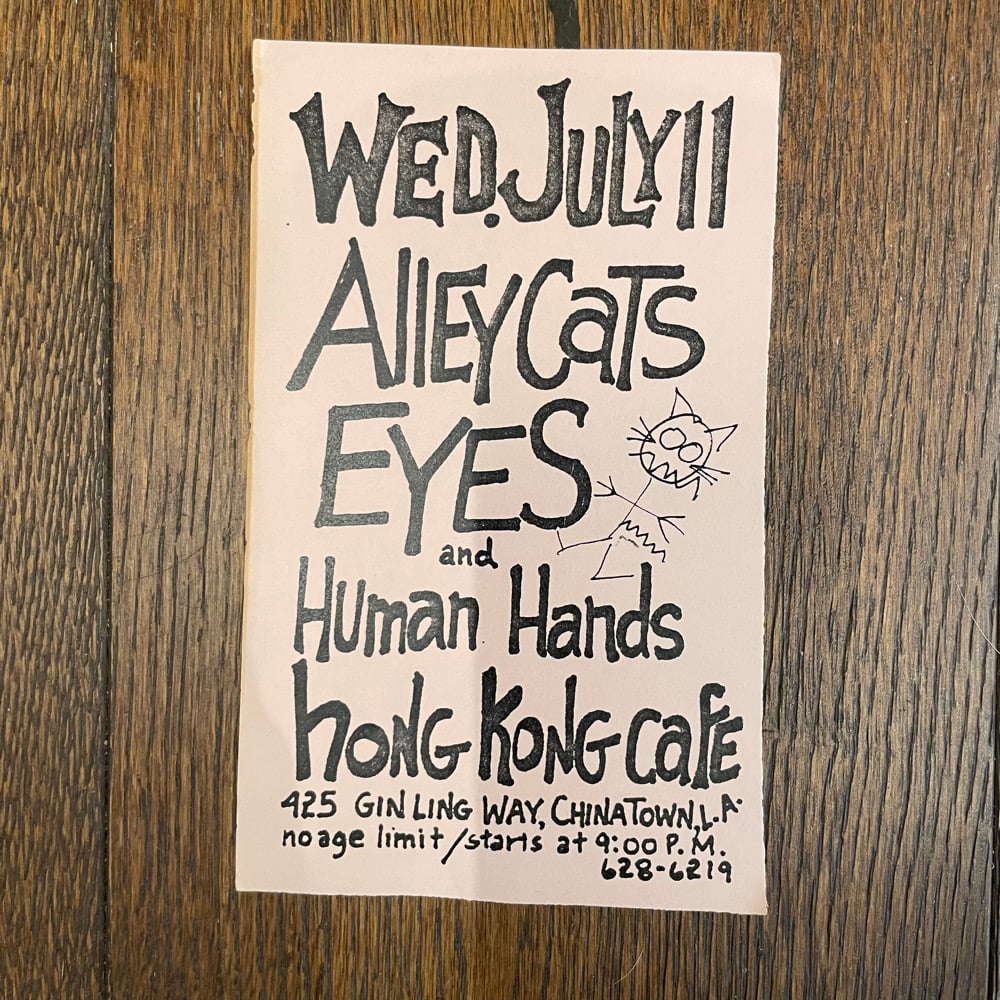 WED. JULY 11
AllEY CaTS
EYES
and
HUman Hands
hONG KONG CaFE
425 GIN LING WAY, CHINATOWN, L.A.
no age limit/starts at 9:00 P.M.
628-6219